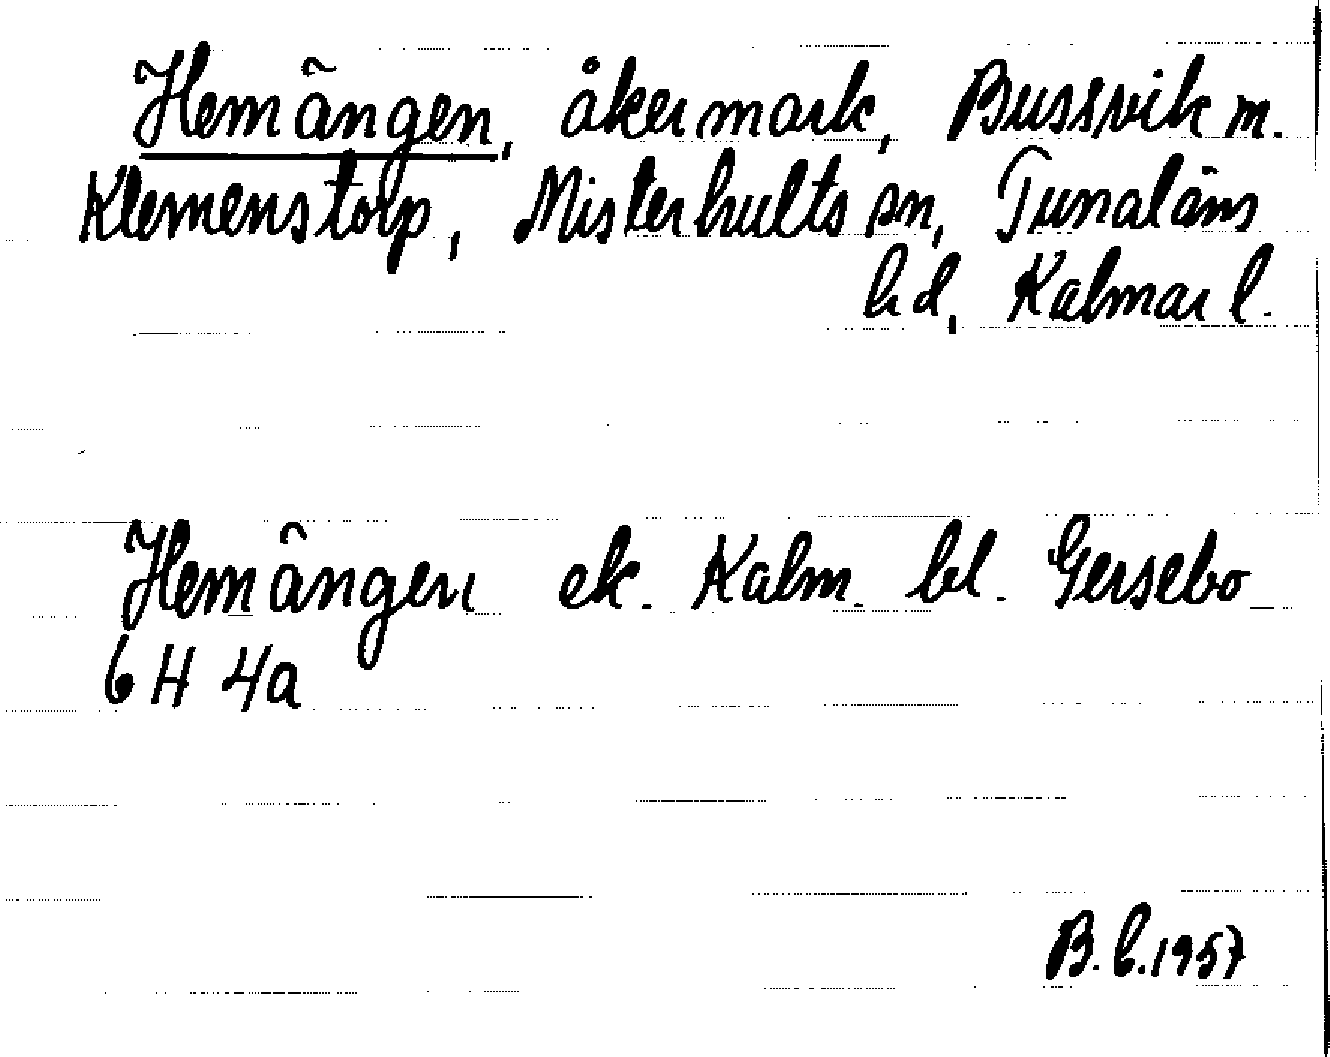 Hemängen, åkermark, Bussvik m.
Klemenstorp, Misterhults sn, Tunaläns
hd, Kalmar l.
Hemängen ek. Kalm. bl. Gersebo
6 H 4a
B.b.1957